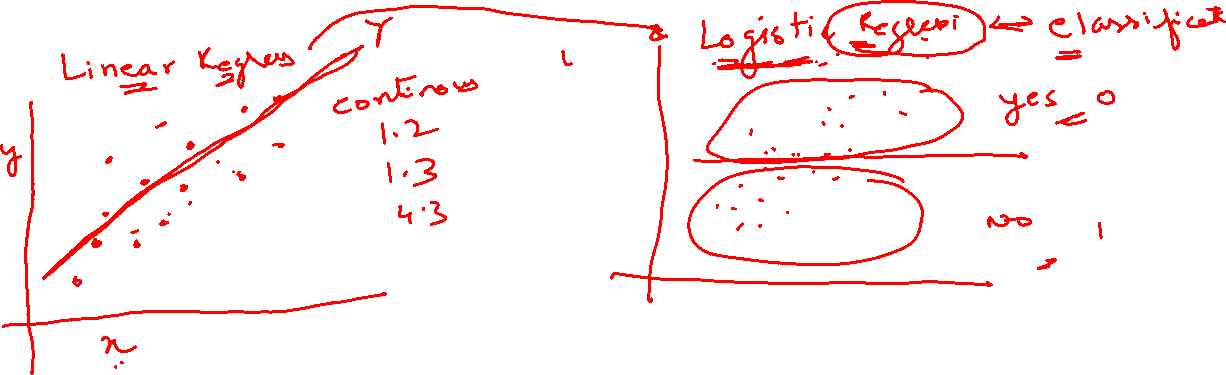 Linear Regress
Y
continous
1.2
1.3
4.3
y
x
Logistic Regressi ↔ classificat
yes 0
NO 1